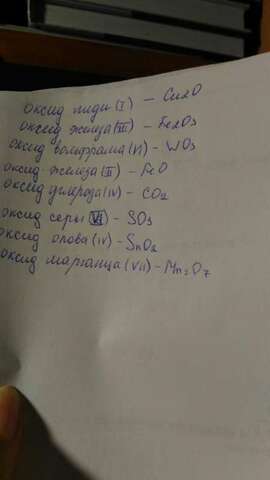 оксид меди (I) — Cu2O
оксид железа (III) — Fe2O3
оксид вольфрама (VI) — WO3
оксид железа (II) — FeO
оксид углерода (IV) — CO2
оксид серы (VI) — SO3
оксид олова (IV) — SnO2
оксид марганца (VII) — Mn2O7